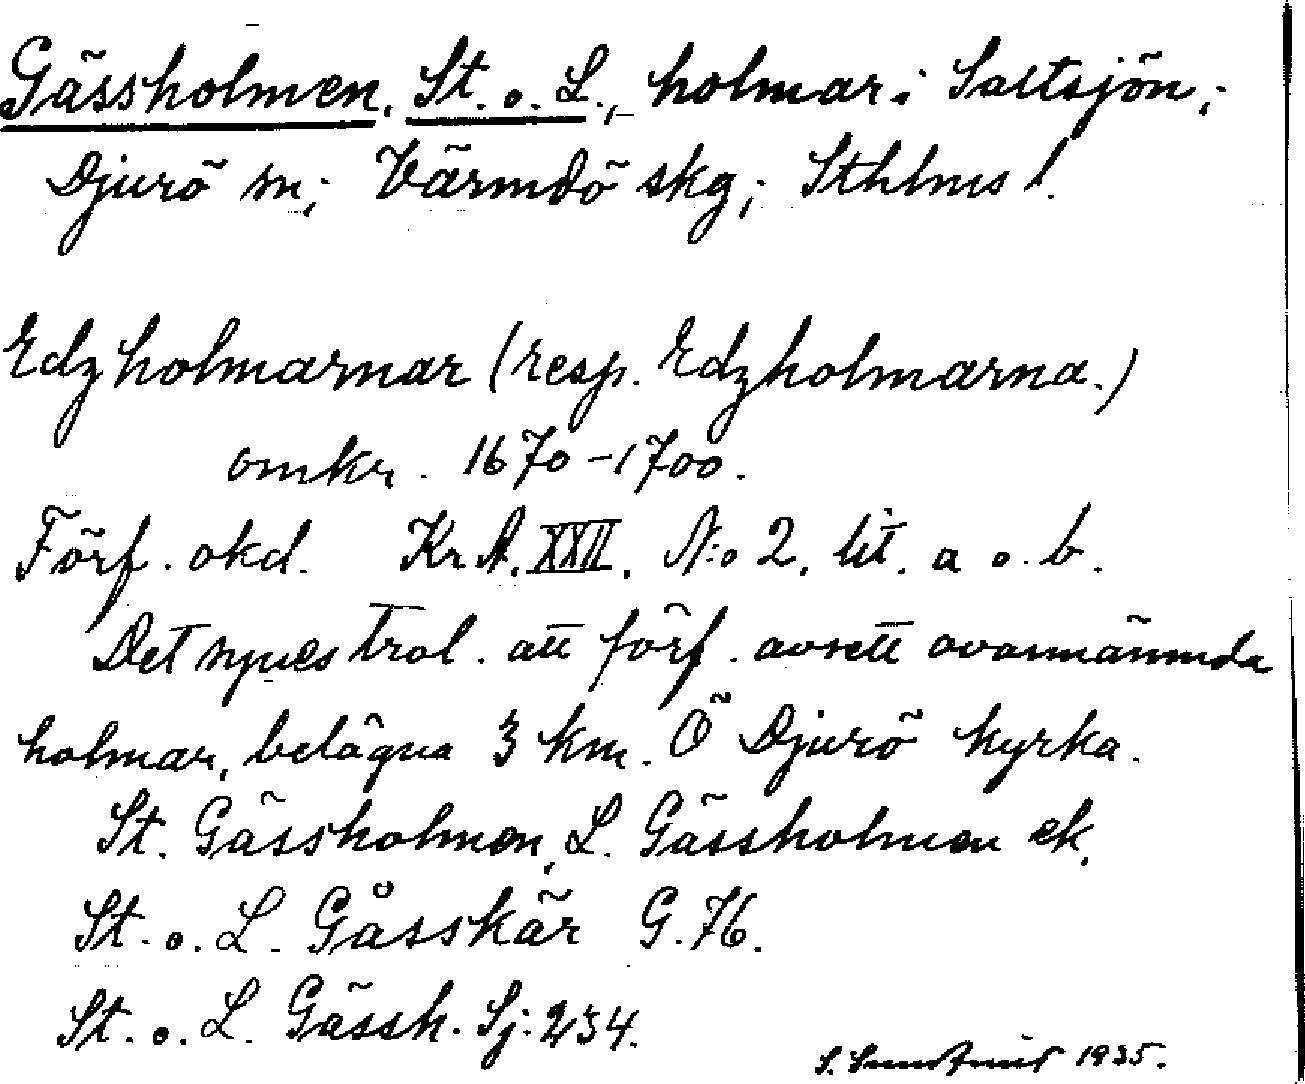 Gässholmen, St. o. L., holmar i Saltsjön;
Djurö sn; Värmdö skg; Sthlms l.
Edzholmarnar (resp. Edzholmarna.)
omkr. 1670-1700.
Förf. okd. Kr A. XXII. N:o 2. lit. a o. b.
Det synes trol. att förf. avsett ovannämnda
holmar, belägna 3 km. Ö Djurö kyrka.
St. Gässholmen, L. Gässholmen ek.
St. o. L. Gåsskär G. 76.
St. o. L. Gässh. Sj: 234.
S. 1935.